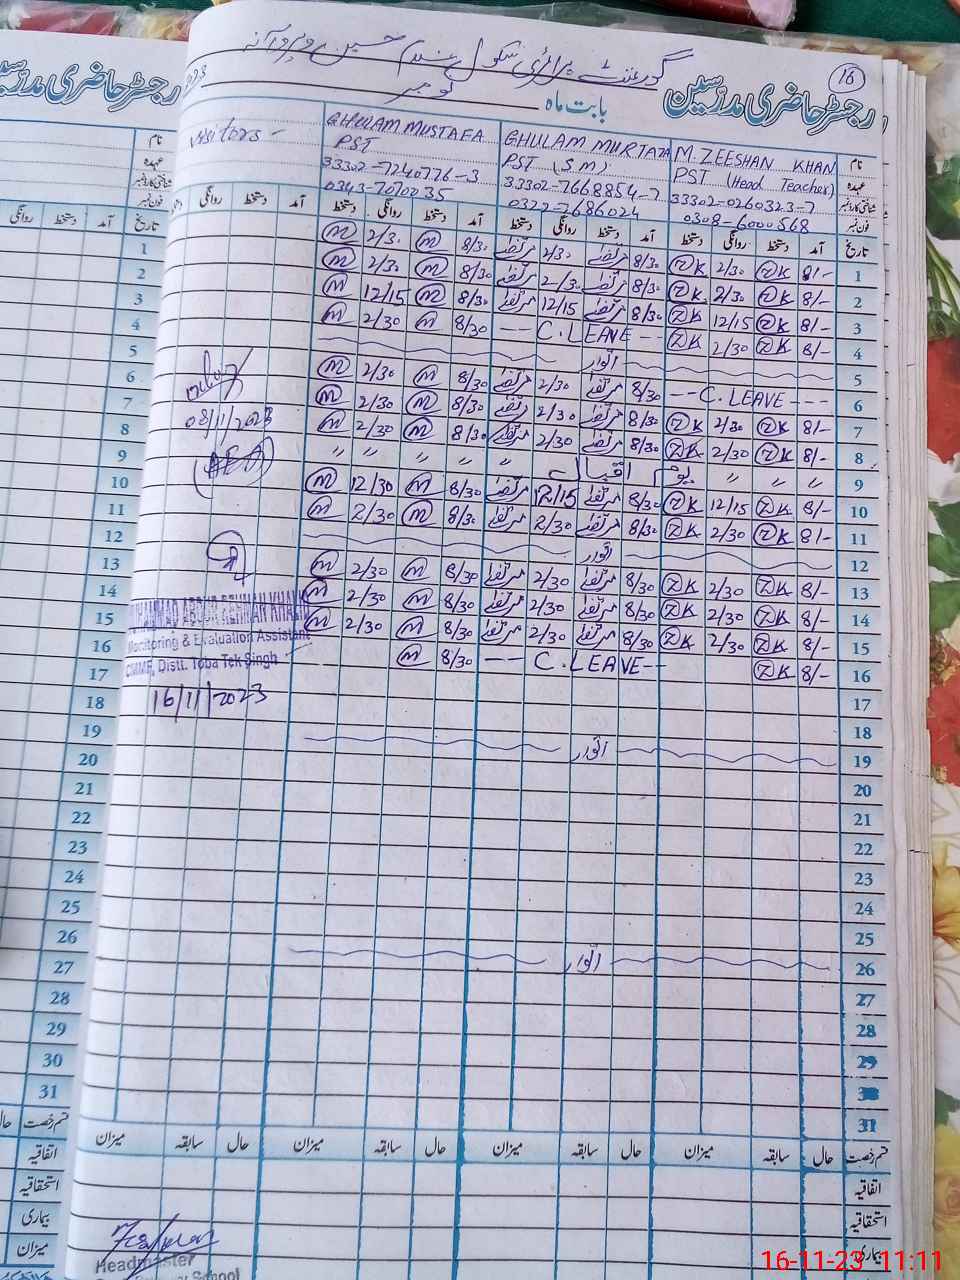 16
گورنمنٹ پرائمری سکول
رجسٹر حاضری مدرسین
بابت ماہ نومبر
visitors -
GHULAM MUSTAFA
PST
33302-7240776-3
0343-7070035
GHULAM MURTAZA
PST (S M)
33302-7668854-7
0322-7686024
M. ZEESHAN KHAN
PST (Head Teacher)
33302-0260323-7
0308-6000568
نام
عہدہ
شناختی کارڈ نمبر
فون نمبر
تاریخ آمد دستخط روانگی دستخط آمد دستخط روانگی دستخط آمد دستخط روانگی دستخط آمد روانگی
1 8/- ZK 2/30 ZK 8/30 مرتضیٰ 2/30 مرتضیٰ 8/30 M 2/30 M
2 8/- ZK 2/30 ZK 8/30 مرتضیٰ 2/30 مرتضیٰ 8/30 M 2/30 M
3 8/- ZK 12/15 ZK 8/30 مرتضیٰ 12/15 مرتضیٰ 8/30 M 12/15 M
4 8/- ZK 2/30 ZK -- C. LEAVE -- 8/30 M 2/30 M
5 اتوار
6 -- C. LEAVE --- 8/30 مرتضیٰ 2/30 مرتضیٰ 8/30 M 2/30 M
7 8/- ZK 2/30 ZK 8/30 مرتضیٰ 2/30 مرتضیٰ 8/30 M 2/30 M
8 8/- ZK 2/30 ZK 8/30 مرتضیٰ 2/30 مرتضیٰ 8/30 M 2/30 M
9 " " " یوم اقبال " " " " "
10 8/- ZK 12/15 ZK 8/30 مرتضیٰ 12/15 مرتضیٰ 8/30 M 12/30 M
11 8/- ZK 2/30 ZK 8/30 مرتضیٰ 2/30 مرتضیٰ 8/30 M 2/30 M
12 اتوار
13 8/- ZK 2/30 ZK 8/30 مرتضیٰ 2/30 مرتضیٰ 8/30 M 2/30 M
14 8/- ZK 2/30 ZK 8/30 مرتضیٰ 2/30 مرتضیٰ 8/30 M 2/30 M
15 8/- ZK 2/30 ZK 8/30 مرتضیٰ 2/30 مرتضیٰ 8/30 M 2/30 M
16 8/- ZK -- C. LEAVE -- 8/30 M
17
18
19 اتوار
20
21
22
23
24
25
26 اتوار
27
28
29
30
31
08/11/2023
(AEO)
MUHAMMAD ABDUR REHMAN KHAN
Monitoring & Evaluation Assistant
Distt. Toba Tek Singh
16/11/2023
قسم رخصت حال سابقہ میزان حال سابقہ میزان حال سابقہ میزان حال سابقہ میزان
اتفاقیہ
استحقاقیہ
بیماری
Headmaster
School
رجسٹر حاضری
نام
عہدہ
شناختی کارڈ نمبر
فون نمبر
تاریخ آمد دستخط روانگی
1
2
3
4
5
6
7
8
9
10
11
12
13
14
15
16
17
18
19
20
21
22
23
24
25
26
27
28
29
30
31
قسم رخصت حال
اتفاقیہ
استحقاقیہ
بیماری
میزان
16-11-23 11:11